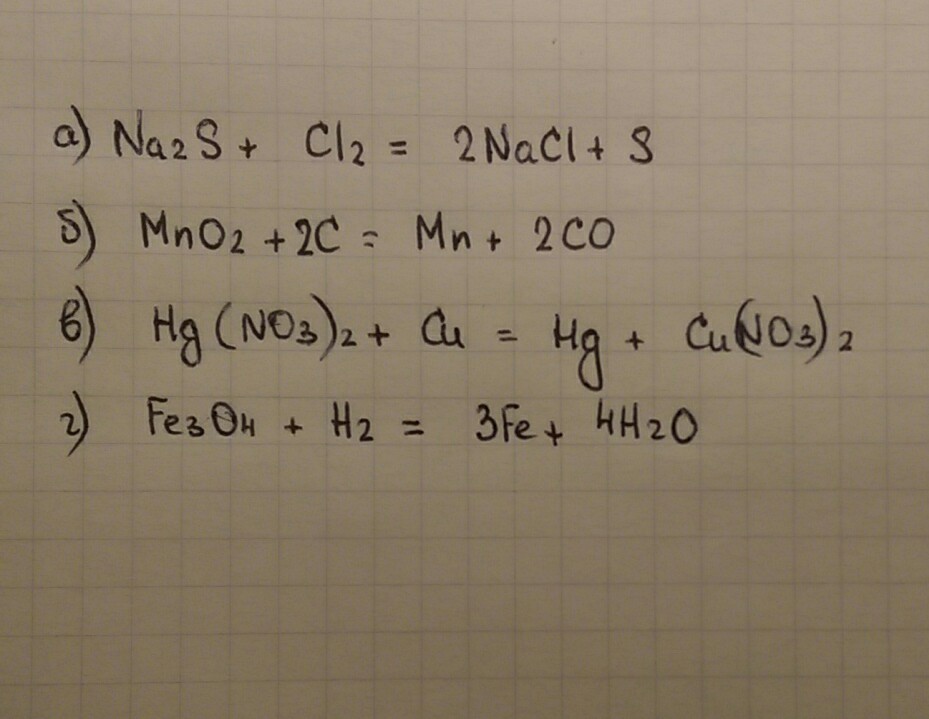 а) Na2S + Cl2 = 2NaCl + S
б) MnO2 + 2C = Mn + 2CO
в) Hg(NO3)2 + Cu = Hg + Cu(NO3)2
г) Fe3O4 + H2 = 3Fe + 4H2O